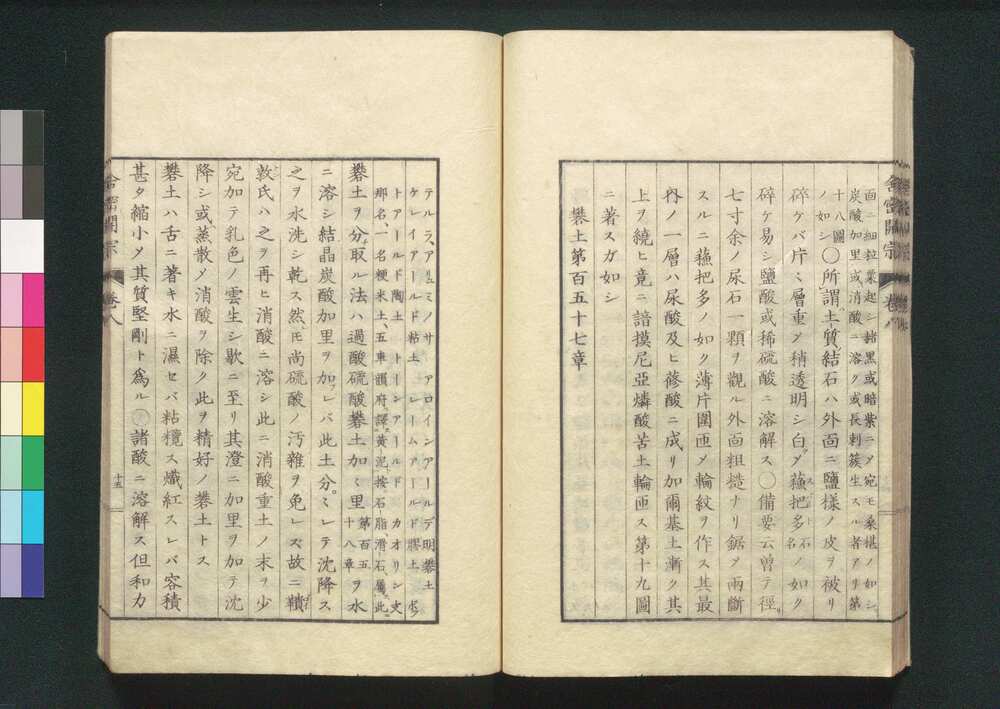 面ニ細粒蒙起シ緒黒或暗紫ニメ宛モ桑椹ノ如シ
炭酸加里或消酸ニ溶ク或長刺簇生スル者アリ第
十八圖ノ如シ〇所謂土質結石ハ外面ニ鹽様ノ皮ヲ被リ
碎ケバ片々層重メ稍透明シ白グ蘓把多石ノ名ノ如ク
碎ケ易シ鹽酸或稀硫酸ニ溶解ス〇備要云曽テ徑リ
七寸余ノ尿石一顆ヲ觀ル外面粗糙ナリ鋸メ兩斷
スルニ蘓把多ノ如ク薄片圍匝メ輪紋ヲ作ス其最
内ノ一層ハ尿酸及ヒ蓚酸ニ成リ加爾基土漸ク其
上ヲ繞ヒ竟ニ諳摸尼亞燐酸苦土輪匝ス第十九圖
ニ著スガ如シ
礬土第百五十七章
舎密開宗
巻八
テルラ、アリュミノサ アロインアールデ明礬土
ケレイアールド粘土 レームアールド膠土
トアールド陶土 トーンアールド カオリン支
那名、一名粳米土、五車韻府譯黄泥、按石脂滑石屬此
礬土ヲ分取ル法ハ過酸硫酸礬土加々里第百五十八章ヲ水
ニ溶シ結晶炭酸加里ヲ加フレバ此土分レテ沈降ス
之ヲ水洗シ乾ス然トモ尚硫酸ノ汚雑ヲ免レズ故ニ精
敦氏ハ之ヲ再ヒ消酸ニ溶シ此ニ消酸重土ノ末ヲ少
宛加テ乳色ノ雲生シ歇ニ至リ其澄ニ加里ヲ加テ沈
降シ或蒸散メ消酸ヲ除ク此ヲ精好ノ礬土トス
礬土ハ舌ニ著キ水ニ濕セバ粘攪ス熾紅スレバ容積
甚タ縮小メ其質堅剛ト為ル諸酸ニ溶解ス但和力
舎密開宗
巻八
十五